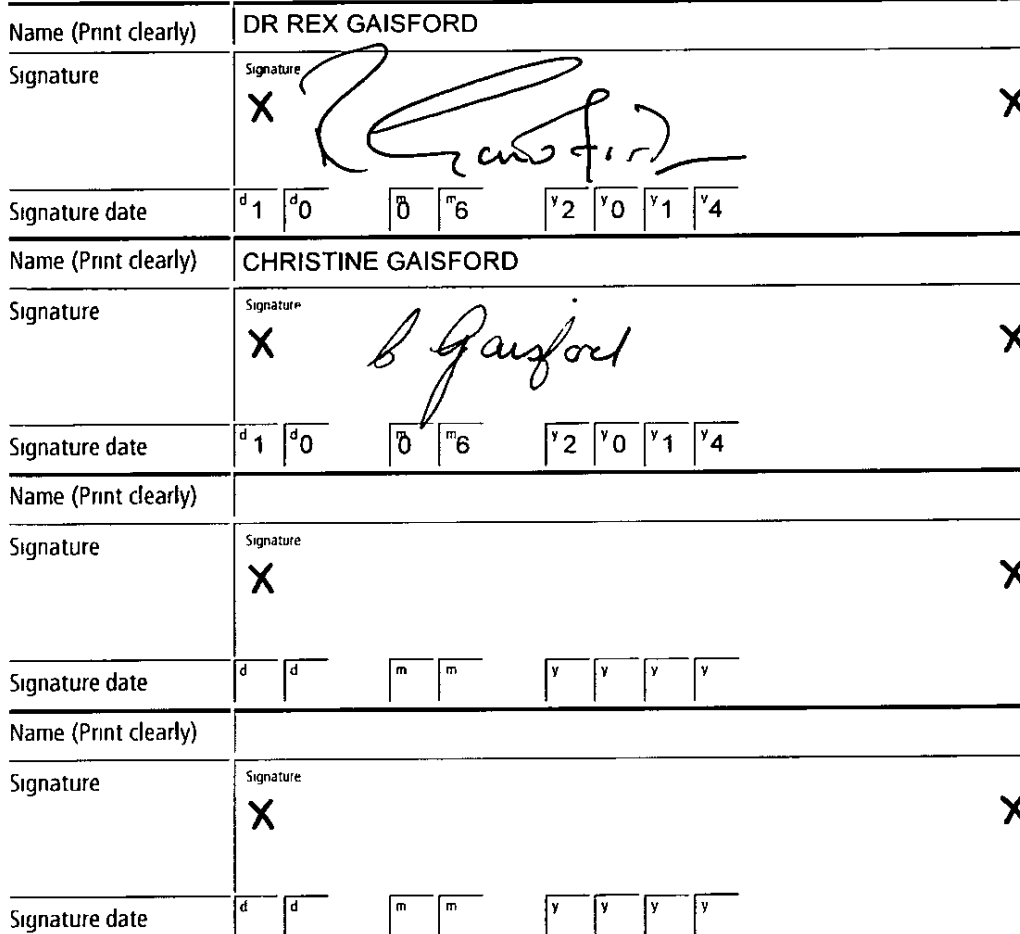 Name (Print clearly) DR REX GAISFORD
Signature Signature
X R Gaisford X
Signature date d1 d0 m0 m6 y2 y0 y1 y4
Name (Print clearly) CHRISTINE GAISFORD
Signature Signature
X C Gaisford X
Signature date d1 d0 m0 m6 y2 y0 y1 y4
Name (Print clearly)
Signature Signature
X X
Signature date d d m m y y y y
Name (Print clearly)
Signature Signature
X X
Signature date d d m m y y y y